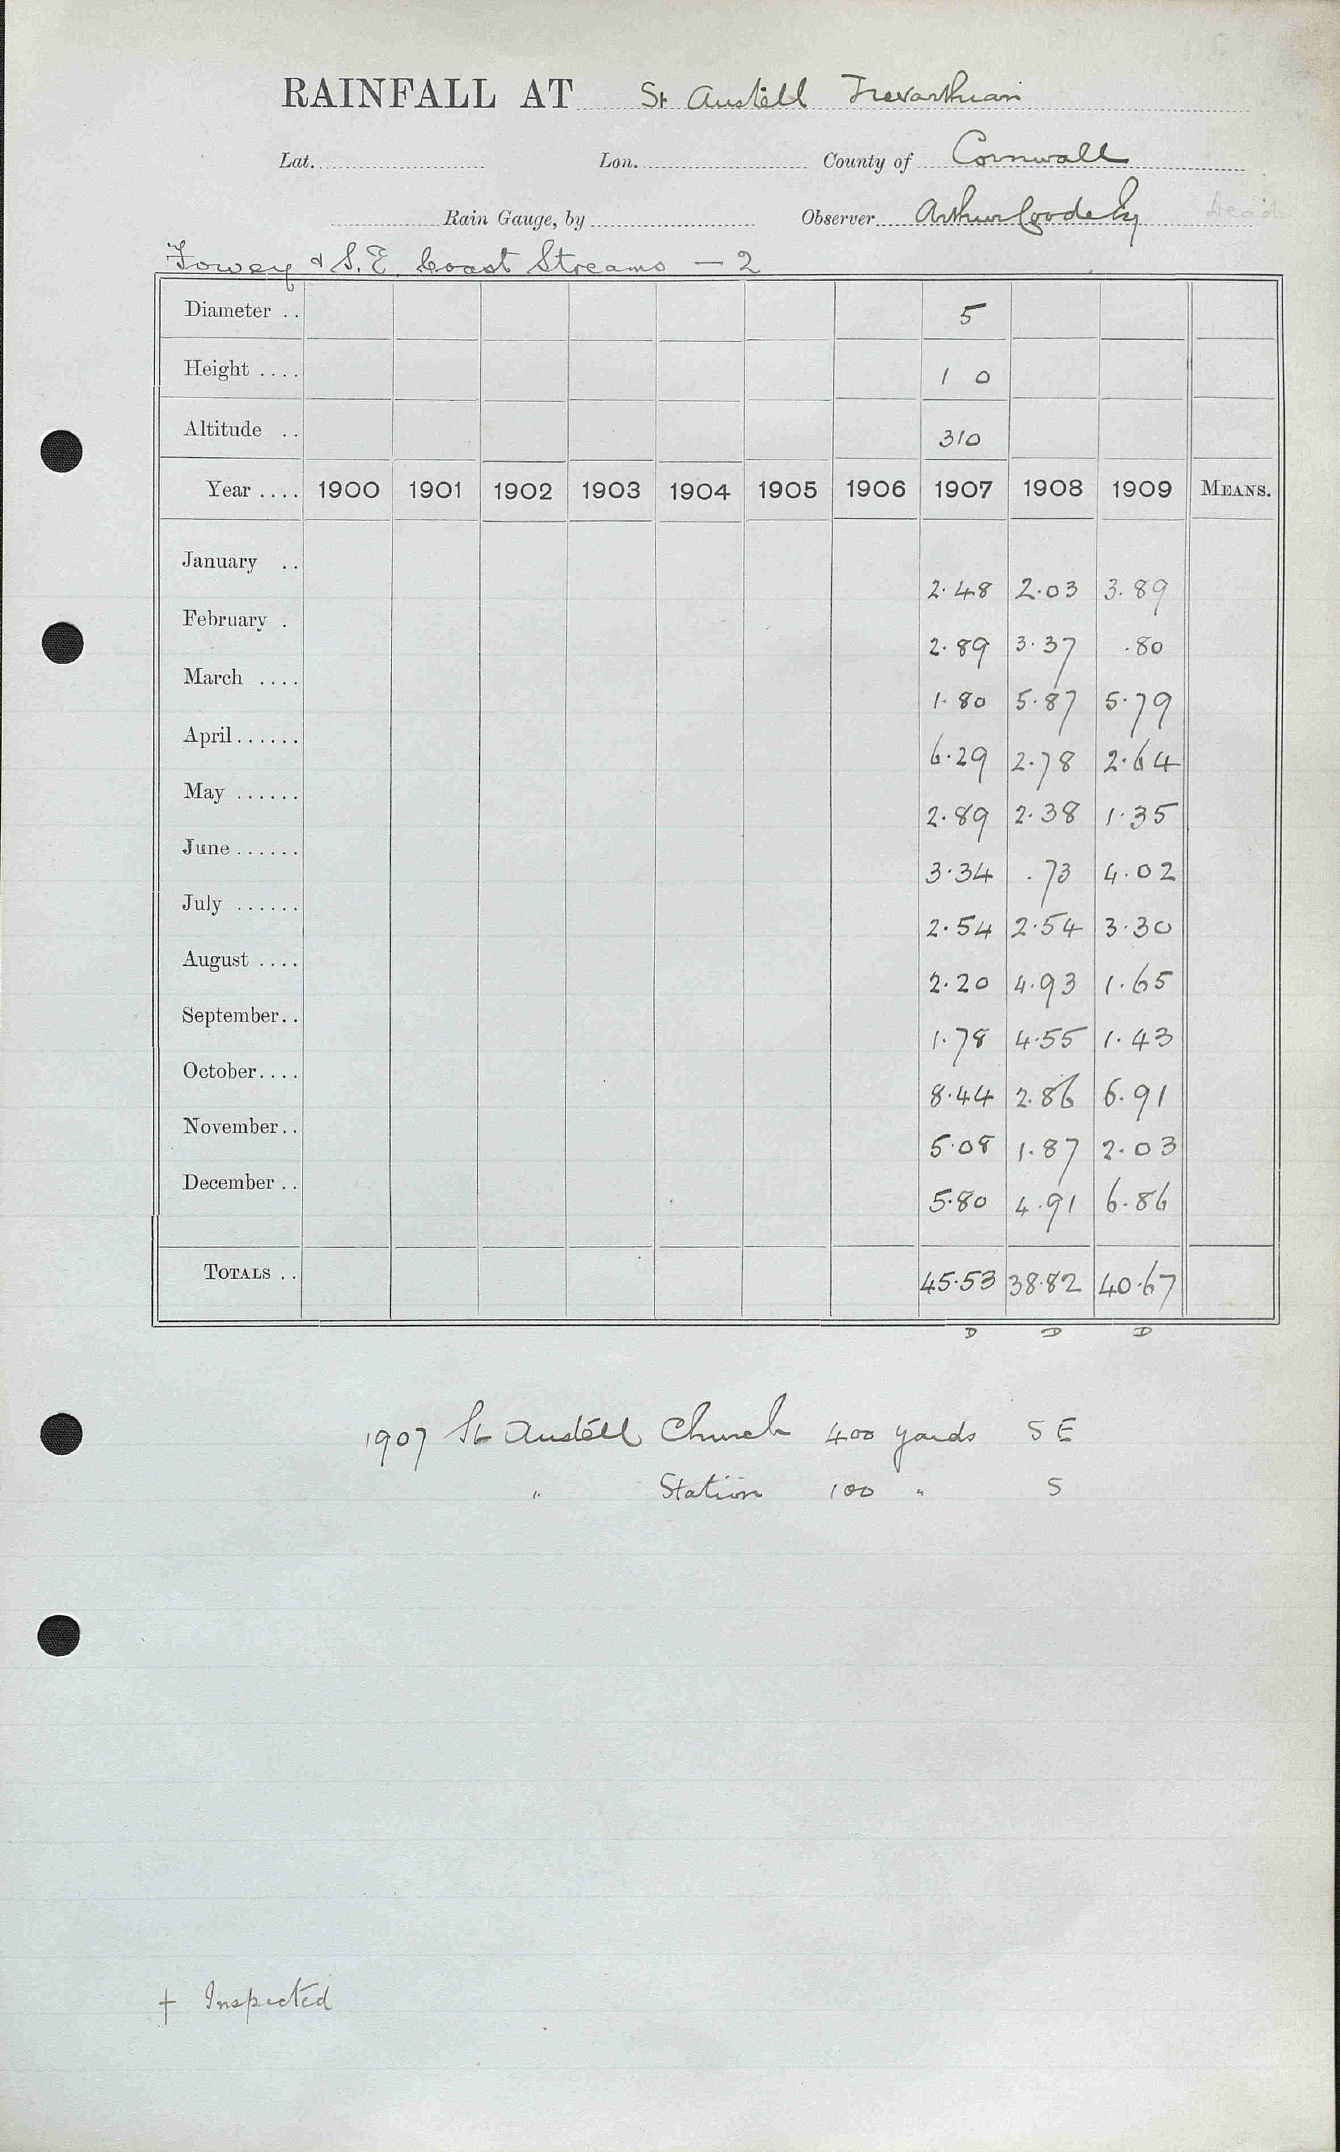 RAINFALL AT St Austell Trevarthian
Lat. Lon. County of Cornwall
Rain Gauge, by Observer Arthur Coode Esq Dead
Fowey & S.E. Coast Streams — 2
Diameter .. 5
Height .... 1 0
Altitude .. 310
Year .... 1900 1901 1902 1903 1904 1905 1906 1907 1908 1909 MEANS.
January .. 2.48 2.03 3.89
February . 2.89 3.37 .80
March .... 1.80 5.87 5.79
April...... 6.29 2.78 2.64
May ...... 2.89 2.38 1.35
June...... 3.34 .73 4.02
July ...... 2.54 2.54 3.30
August .... 2.20 4.93 1.65
September.. 1.78 4.55 1.43
October.... 8.44 2.86 6.91
November.. 5.08 1.87 2.03
December .. 5.80 4.91 6.86
TOTALS .. 45.53 38.82 40.67
D D D
1907 St Austell Church 400 yards S E
" Station 100 " S
† Inspected